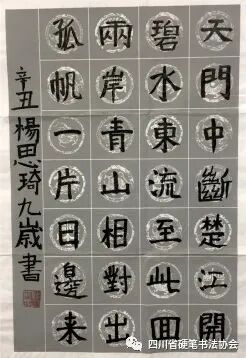 天門中斷楚江開
碧水東流至此囬
兩岸青山相對出
孤帆一片日邊来
辛丑楊思琦九歲書
四川省硬笔书法协会